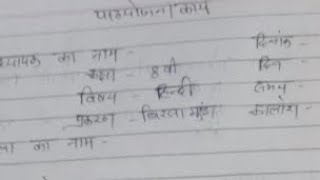 पाठयोजना कार्य
ध्यापक का नाम - दिनांक -
कक्षा - 8 वी दिन -
विषय - हिन्दी समय -
प्रकरण - बिरसा मुंडा कालांश -
का नाम -